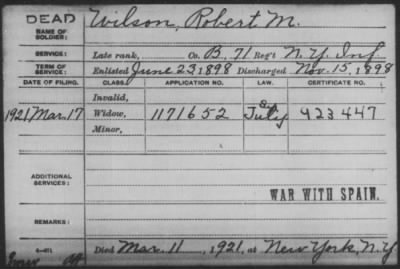 DEAD
NAME OF SOLDIER: Wilson, Robert M.
SERVICE: Late rank, Co. B, 71 Reg't N.Y. Inf
TERM OF SERVICE: Enlisted June 23, 1898 Discharged Nov. 15, 1898
DATE OF FILING. CLASS. APPLICATION NO. LAW. CERTIFICATE NO.
Invalid,
1921 Mar. 17 Widow, 1171652 July 423447
Minor,
ADDITIONAL SERVICES:
WAR WITH SPAIN.
REMARKS:
Died Mar. 11, 1921, at New York, N.Y.